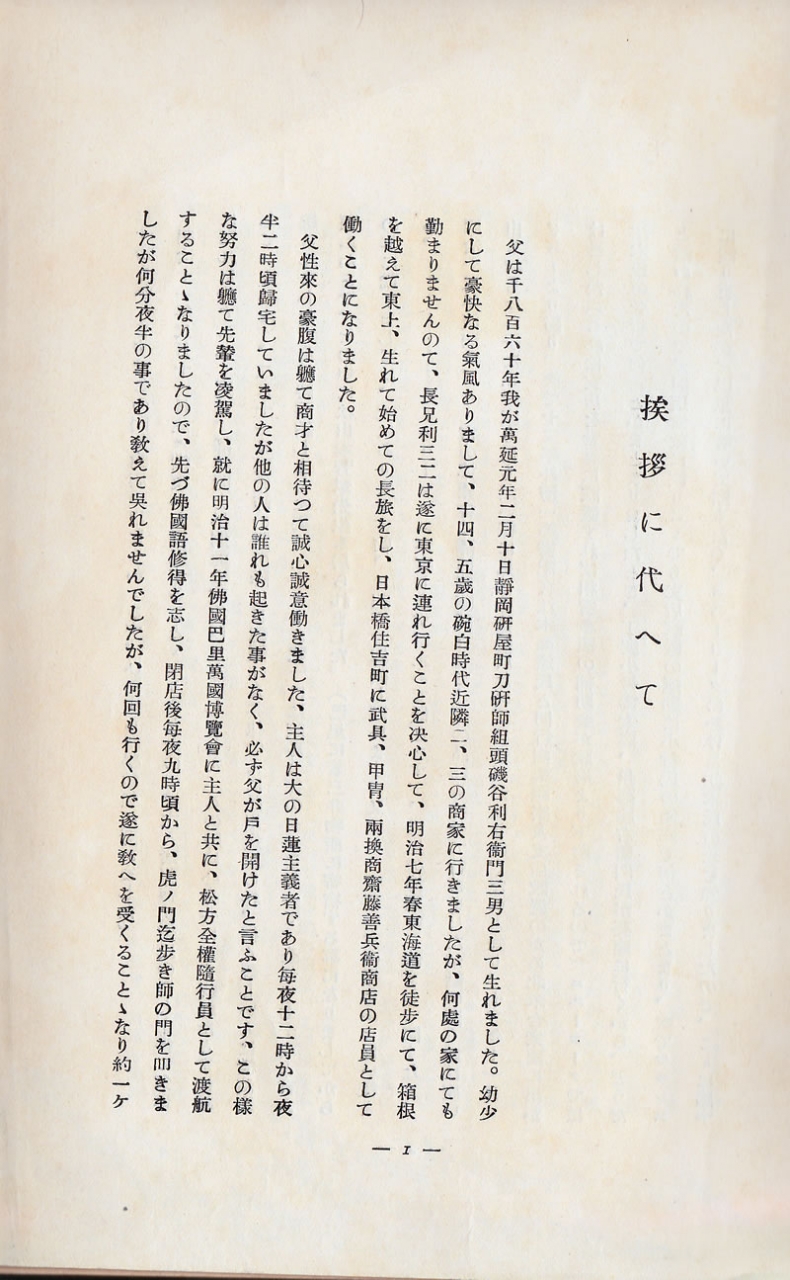 挨拶に代へて
父は千八百六十年我が萬延元年二月十日靜岡硏屋町刀硏師組頭磯谷利右衞門三男として生れました。幼少
にして豪快なる氣風ありまして、十四、五歲の碗白時代近隣二、三の商家に行きましたが、何處の家にても
勤まりませんのて、長兄利三二は遂に東京に連れ行くことを決心して、明治七年春東海道を徒步にて、箱根
を越えて東上、生れて始めての長旅をし、日本橋住吉町に武具、甲冑、兩換商齋藤善兵衞商店の店員として
働くことになりました。
父性來の豪腹は軈て商才と相待つて誠心誠意働きました、主人は大の日蓮主義者であり每夜十二時から夜
半二時頃歸宅していましたが他の人は誰れも起きた事がなく、必ず父が戶を開けたと言ふことです、この樣
な努力は軈て先輩を凌駕し、就に明治十一年佛國巴里萬國博覽會に主人と共に、松方全權隨行員として渡航
することゝなりましたので、先づ佛國語修得を志し、閉店後每夜九時頃から、虎ノ門迄步き師の門を叩きま
したが何分夜半の事であり敎えて吳れませんでしたが、何回も行くので遂に敎へを受くることゝなり約一ケ
— 1 —